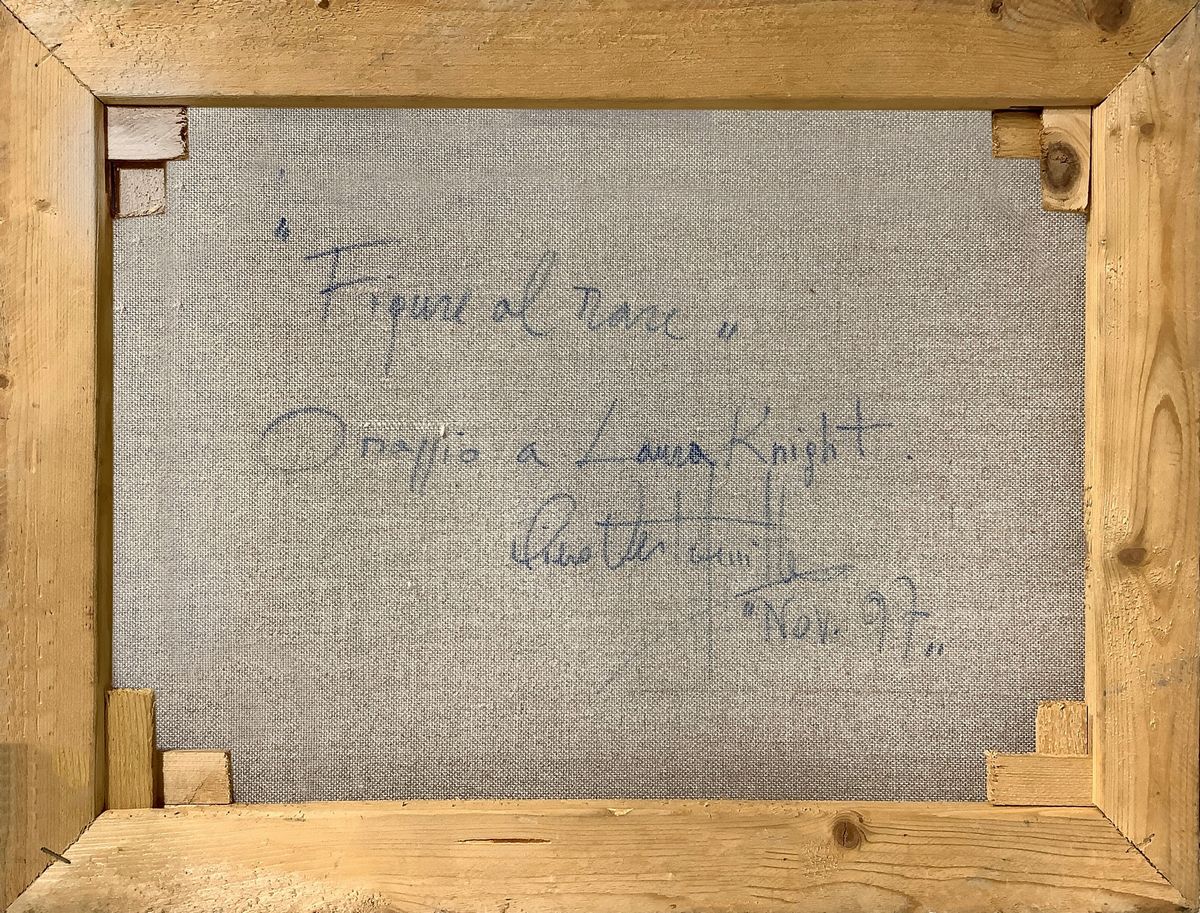 "Figure al mare"
Omaggio a Laura Knight.
"Nov. 97"